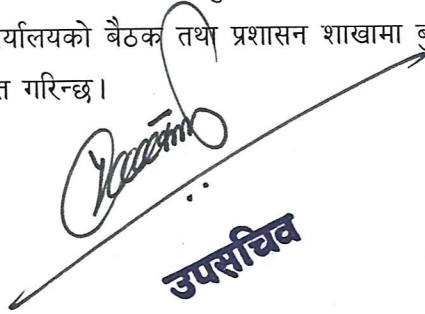 र्यालयको बैठक तथा प्रशासन शाखामा
गरिन्छ।
उपसचिव